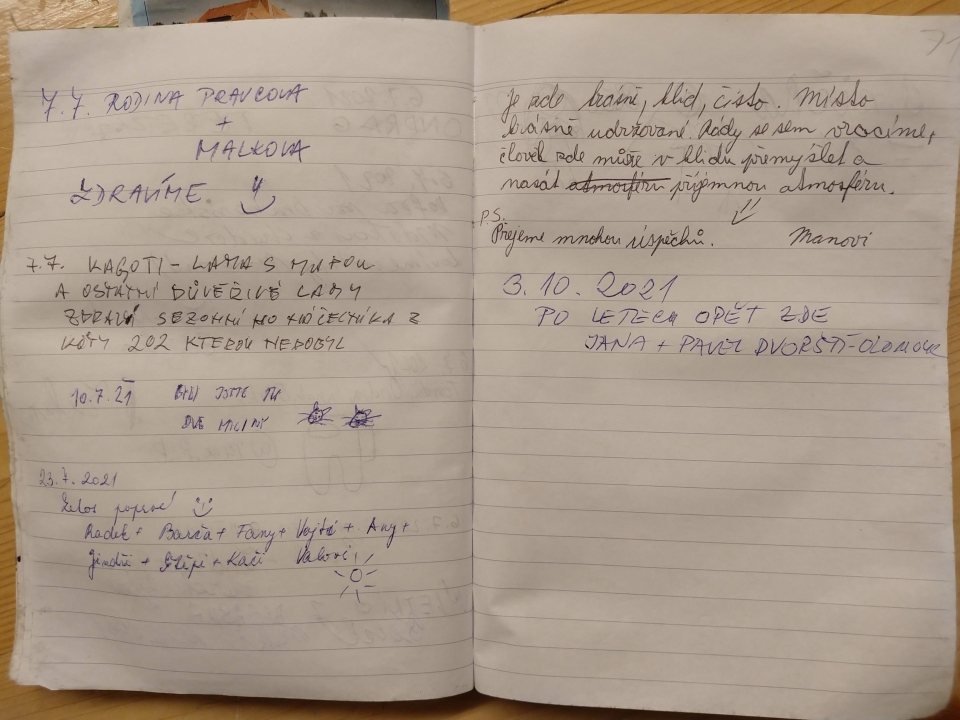 7.7. RODINA PRAVCOVA
+
MALKOVA
ZDRAVÍME
7.7. KAGOTI - LAMA S MUTOU
A OSTATNÍ DŮVEŘIVÉ LAMY
ZDRAVÍ SEZONNÍHO
KÓTY 202 KTEROU NEDOBYL
10.7.21 BYLI JSME TU
DVĚ MICINY
23.7.2021
Letos poprvé
Radek + Barča + Fany + Vojta + Any +
Jindři + Štěpi + Kači Valovi
71
Je zde krásně, klid, čisto. Místo
krásně udržované. Rády se sem vracíme,
člověk zde může v klidu přemýšlet a
nasát atmosféru příjemnou atmosféru.
P.S.
Přejeme mnohou úspěchů. Manovi
3.10.2021
PO LETECH OPĚT ZDE
JANA + PAVEL DVOŘŠTÍ-OLOMOUC